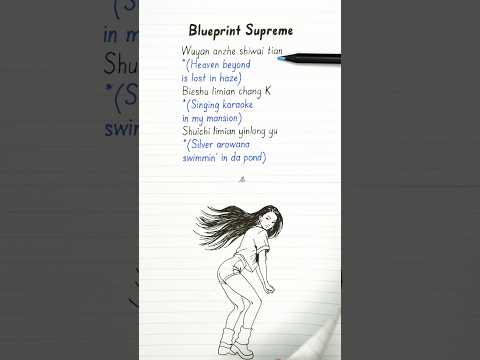 Blueprint Supreme
Wuyan anzhe shiwai tian
*(Heaven beyond
is lost in haze)
Bieshu limian chang K
*(Singing karaoke
in my mansion)
Shuichi limian yinlong yu
*(Silver arowana
swimmin' in da pond)
Shu
*(S
swimm